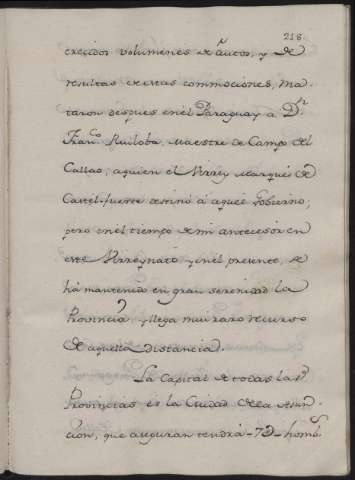 218
crecidos volumenes de autos, y de
resultas de estas commociones, ma-
taron despues en el Paraguay a D.n
Fran.co Ruiloba, Maestre de Campo del
Callao, a quien el Virrey Marqués de
Castel-fuerte destinó á aquel Gobierno;
pero en el tiempo de mi antecesor en
este Virreynato, y en el presente, se
há mantenido en gran serenidad la
Provincia, y llega mui raro recurso
de aquella distancia.
La Capital de todas las
Provincias es la Ciudad de la Asun-
cion, que aseguran tendrá